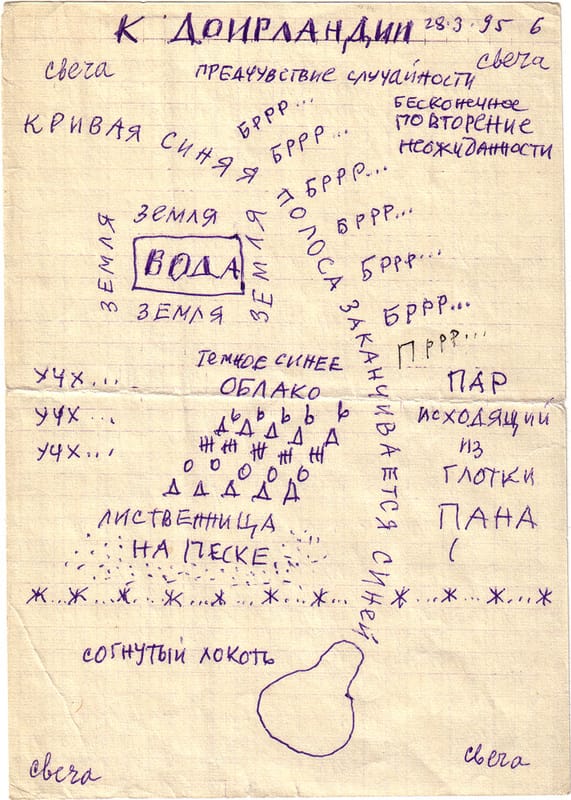 К ДОИРЛАНДИИ
28.3.95 6
свеча
свеча
ПРЕДЧУВСТВИЕ СЛУЧАЙНОСТИ
БЕСКОНЕЧНОЕ
ПОВТОРЕНИЕ
НЕОЖИДАННОСТИ
КРИВАЯ СИНЯЯ ПОЛОСА ЗАКАНЧИВАЕТСЯ СИНЕЙ
БРРР...
БРРР...
БРРР...
БРРР...
БРРР...
БРРР...
ПРРР...
ЗЕМЛЯ
ЗЕМЛЯ
ВОДА
ЗЕМЛЯ
ЗЕМЛЯ
ТЕМНОЕ СИНЕЕ
ОБЛАКО
УЧХ...
УЧХ...
УЧХ...
Ь Ь Ь Ь Ь
Д Д Д Д Д
Ж Ж Ж Ж Ж
О О О О О
Д Д Д Д Д
ПАР
ИСХОДЯЩИЙ
ИЗ
ГЛОТКИ
ПАНА
(
ЛИСТВЕННИЦА
НА ПЕСКЕ
Ж...Ж...Ж...Ж...Ж...Ж...Ж... Ж...Ж...Ж...Ж
СОГНУТЫЙ ЛОКОТЬ
свеча
свеча